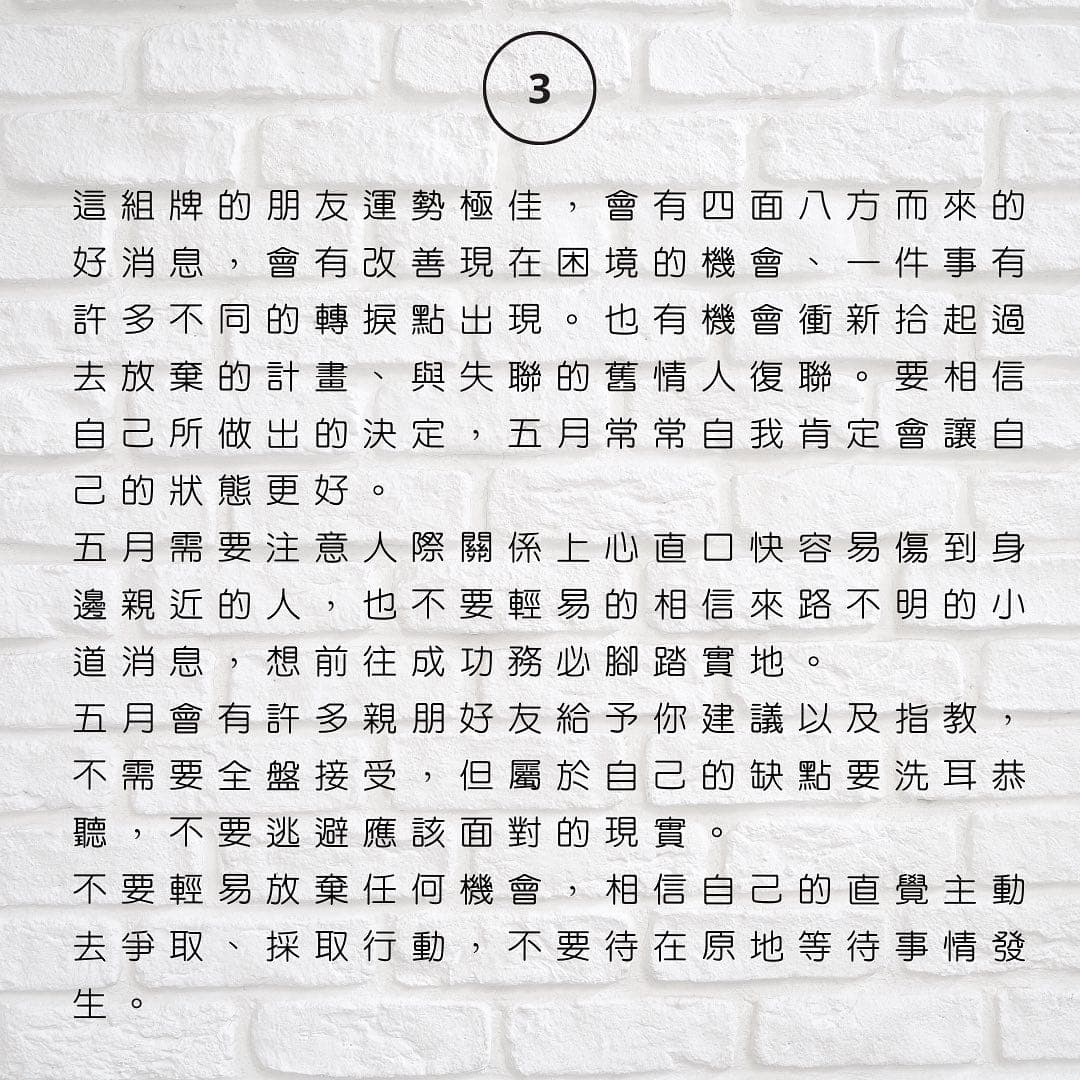 3
這組牌的朋友運勢極佳，會有四面八方而來的
好消息，會有改善現在困境的機會、一件事有
許多不同的轉捩點出現。也有機會衝新拾起過
去放棄的計畫、與失聯的舊情人復聯。要相信
自己所做出的決定，五月常常自我肯定會讓自
己的狀態更好。
五月需要注意人際關係上心直口快容易傷到身
邊親近的人，也不要輕易的相信來路不明的小
道消息，想前往成功務必腳踏實地。
五月會有許多親朋好友給予你建議以及指教，
不需要全盤接受，但屬於自己的缺點要洗耳恭
聽，不要逃避應該面對的現實。
不要輕易放棄任何機會，相信自己的直覺主動
去爭取、採取行動，不要待在原地等待事情發
生。